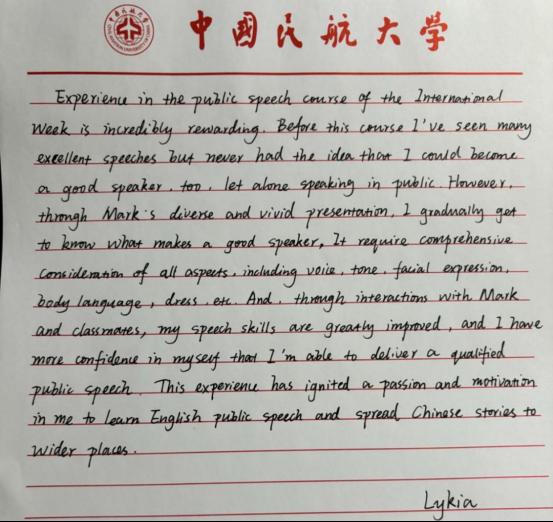 中國民航大学
Experience in the public speech course of the International
Week is incredibly rewarding. Before this course I've seen many
excellent speeches but never had the idea that I could become
a good speaker, too, let alone speaking in public. However,
through Mark's diverse and vivid presentation, I gradually get
to know what makes a good speaker, It require comprehensive
consideration of all aspects, including voice, tone, facial expression,
body language, dress, etc. And, through interactions with Mark
and classmates, my speech skills are greatly improved, and I have
more confidence in myself that I'm able to deliver a qualified
public speech. This experience has ignited a passion and motivation
in me to learn English public speech and spread Chinese stories to
wider places.
Lykia